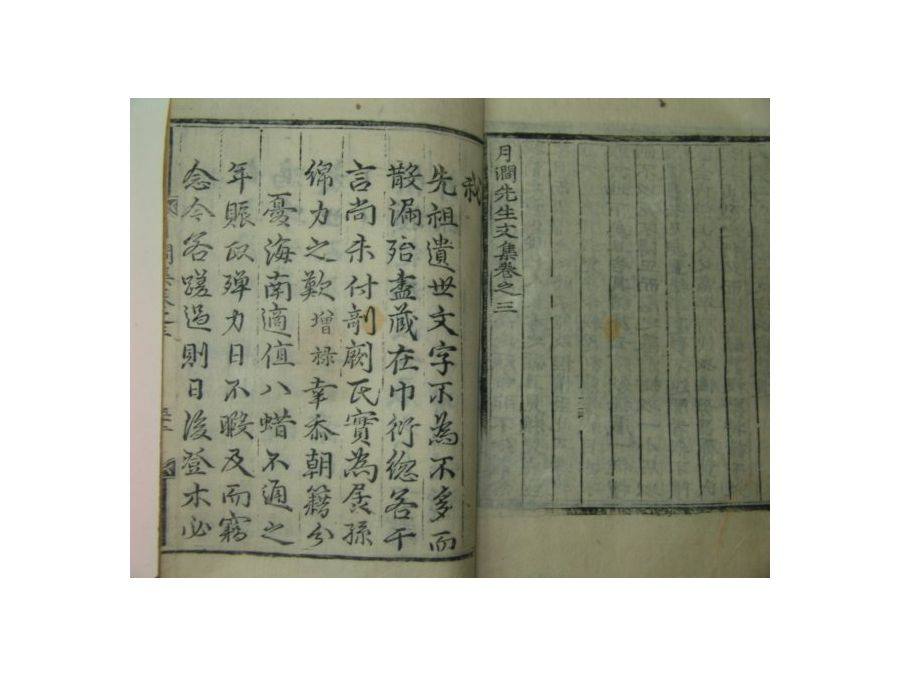 月澗先生文集卷之三
先祖遺世文字不為不多而
散漏殆盡藏在巾衍緫若干
言尚未付剞劂氏實為孱孫
綿力之歎增祿幸忝朝籍分
憂海南適值八蜡不通之
年賑政殫力日不暇及而竊
念今若蹉過則日後登木必